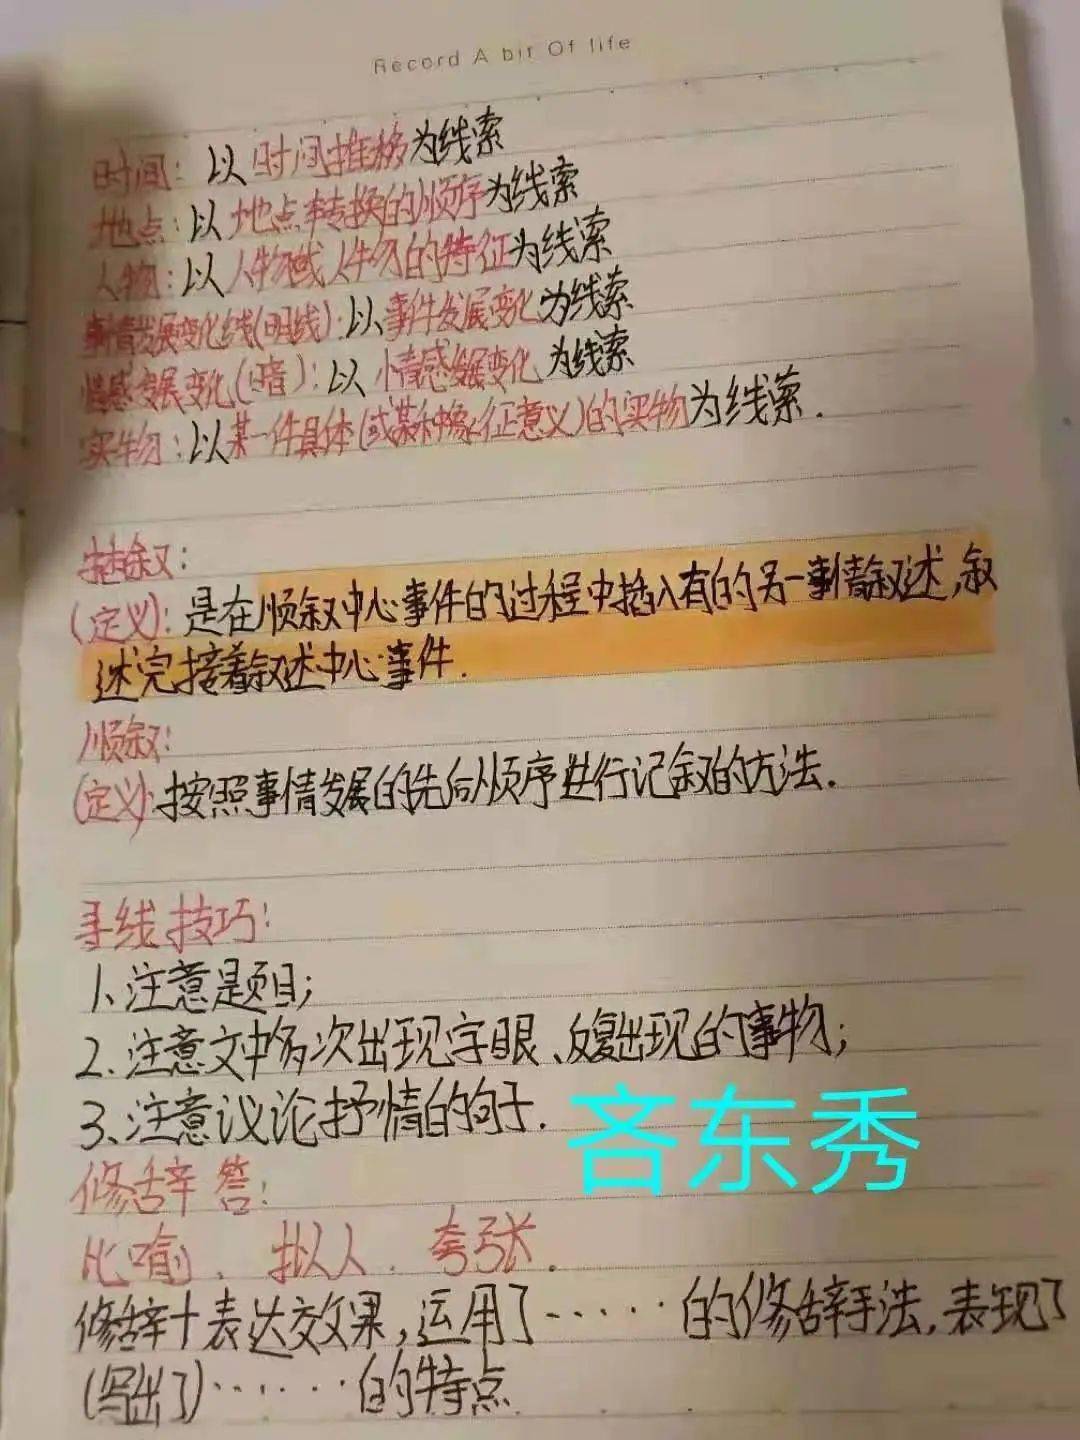 Record A bit Of life
时间：以时间推移为线索
地点：以地点转换的顺序为线索
人物：以人物或人物的特征为线索
事情发展变化线(明线)：以事件发展变化为线索
情感发展变化(暗)：以情感发展变化为线索
实物：以某一件具体(或某种象征意义)的实物为线索.
插叙：
(定义)：是在顺叙中心事件的过程中插入有的另一事情叙述,叙
述完接着叙述中心事件.
顺叙：
(定义)：按照事情发展的先后顺序进行记叙的方法.
寻线技巧：
1、注意题目；
2、注意文中多次出现字眼、反复出现的事物；
3、注意议论抒情的句子.
吝东秀
修辞答：
比喻、拟人、夸张.
修辞+表达效果,运用了······的修辞手法,表现了
(写出了)······的特点